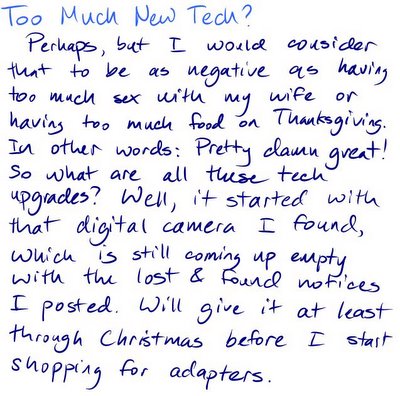 Too Much New Tech?
Perhaps, but I would consider
that to be as negative as having
too much sex with my wife or
having too much food on Thanksgiving.
In other words: Pretty damn great!
So what are all these tech
upgrades? Well, it started with
that digital camera I found,
which is still coming up empty
with the lost & found notices
I posted. Will give it at least
through Christmas before I start
shopping for adapters.